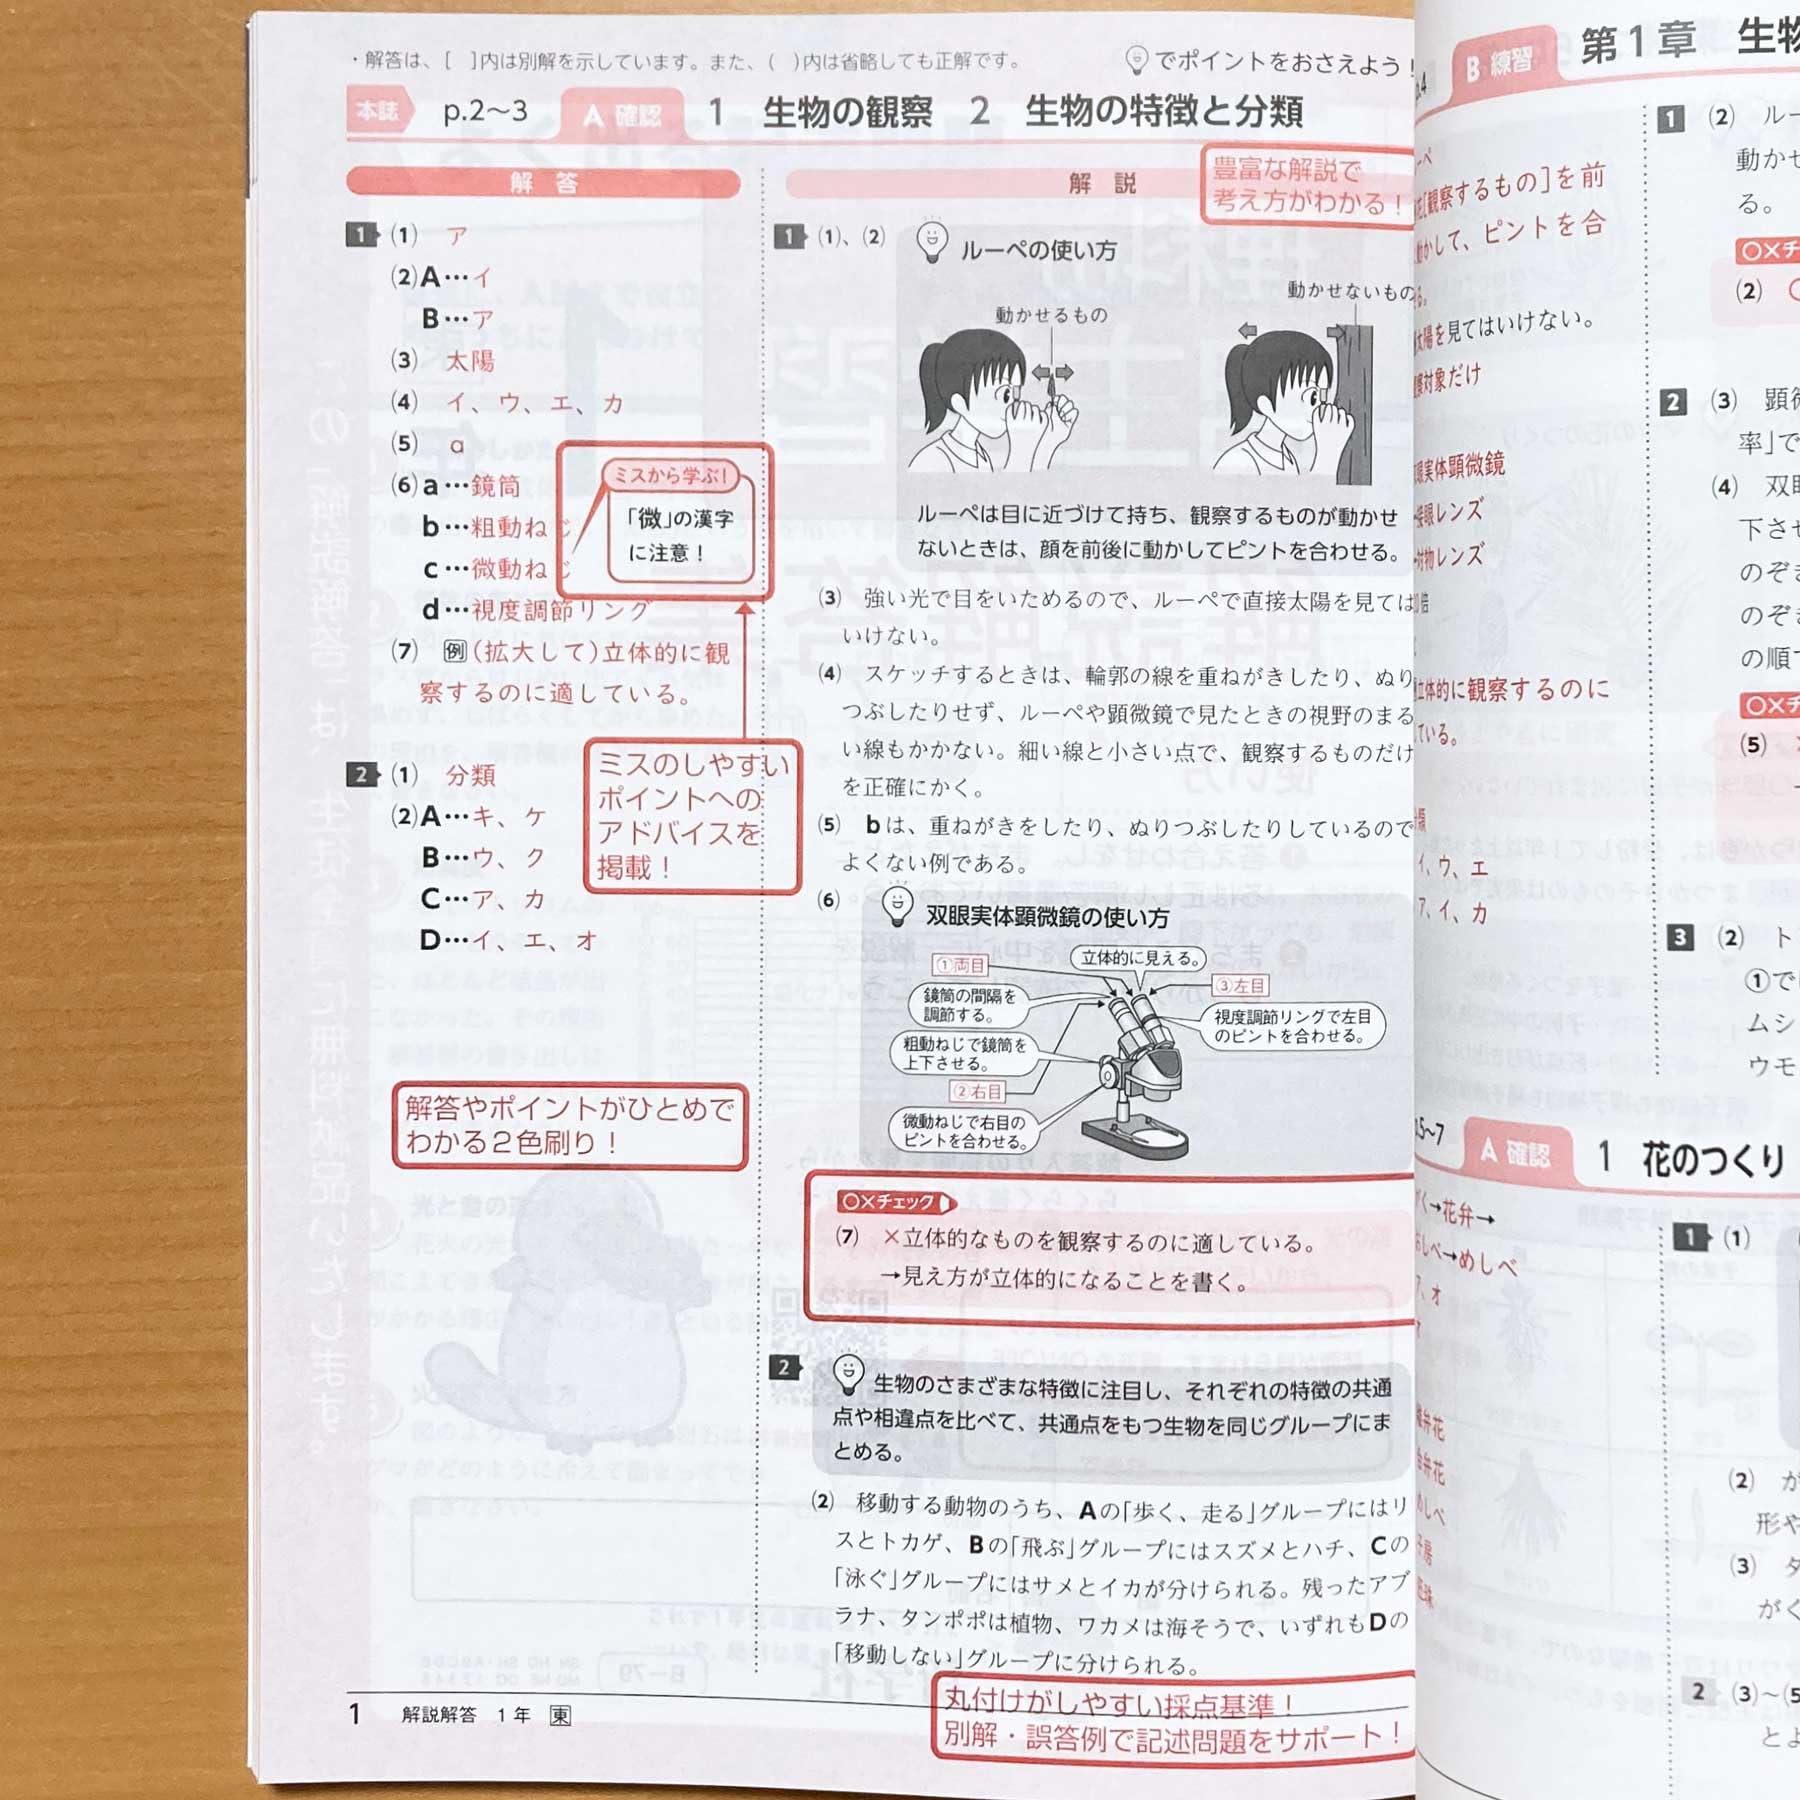 ・解答は、[　]内は別解を示しています。また、(　)内は省略しても正解です。
でポイントをおさえよう！
本誌 p.2〜3 A 確認 1 生物の観察 2 生物の特徴と分類
解答
1 (1) ア
(2)A…イ
B…ア
(3) 太陽
(4) イ、ウ、エ、カ
(5) a
(6)a…鏡筒
b…粗動ねじ
c…微動ねじ
d…視度調節リング
(7) 例(拡大して)立体的に観
察するのに適している。
ミスから学ぶ！
「微」の漢字
に注意！
ミスのしやすい
ポイントへの
アドバイスを
掲載！
2 (1) 分類
(2)A…キ、ケ
B…ウ、ク
C…ア、カ
D…イ、エ、オ
解答やポイントがひとめで
わかる２色刷り！
解説
豊富な解説で
考え方がわかる！
1 (1)、(2)
ルーペの使い方
動かせるもの
動かせないもの
ルーペは目に近づけて持ち、観察するものが動かせ
ないときは、顔を前後に動かしてピントを合わせる。
(3) 強い光で目をいためるので、ルーペで直接太陽を見ては
いけない。
(4) スケッチするときは、輪郭の線を重ねがきしたり、ぬり
つぶしたりせず、ルーペや顕微鏡で見たときの視野のまる
い線もかかない。細い線と小さい点で、観察するものだけ
を正確にかく。
(5) bは、重ねがきをしたり、ぬりつぶしたりしているので
よくない例である。
(6) 双眼実体顕微鏡の使い方
①両目
立体的に見える。
③左目
鏡筒の間隔を
調節する。
視度調節リングで左目
のピントを合わせる。
粗動ねじで鏡筒を
上下させる。
②右目
微動ねじで右目の
ピントを合わせる。
○×チェック
(7) ×立体的なものを観察するのに適している。
→見え方が立体的になることを書く。
2 生物のさまざまな特徴に注目し、それぞれの特徴の共通
点や相違点を比べて、共通点をもつ生物を同じグループにま
とめる。
(2) 移動する動物のうち、Aの「歩く、走る」グループにはリ
スとトカゲ、Bの「飛ぶ」グループにはスズメとハチ、Cの
「泳ぐ」グループにはサメとイカが分けられる。残ったアブ
ラナ、タンポポは植物、ワカメは海そうで、いずれもDの
「移動しない」グループに分けられる。
丸付けがしやすい採点基準！
別解・誤答例で記述問題をサポート！
1 解説解答 1年 東
B 練習 第1章 生物
[観察するもの]を前
動かして、ピントを合
太陽を見てはいけない。
対象だけ
実体顕微鏡
接眼レンズ
対物レンズ
立体的に観察するのに
ている。
イ、ウ、エ
ア、イ、カ
5〜7 A 確認 1 花のつくり
→花弁→
→めしべ
ア、オ
弁花
弁花
めしべ
子房
1 (2) ルー
動かせ
る。
○×チ
(2)
2 (3) 顕微
率」で
(4) 双眼
下させ
のぞき
のぞき
の順で
○×チ
(5)
3 (2) ト
①で
ムシ
ウモ
1 (1)
(2) が
形や
(3) タ
がく
2 (3)〜(5
とよ